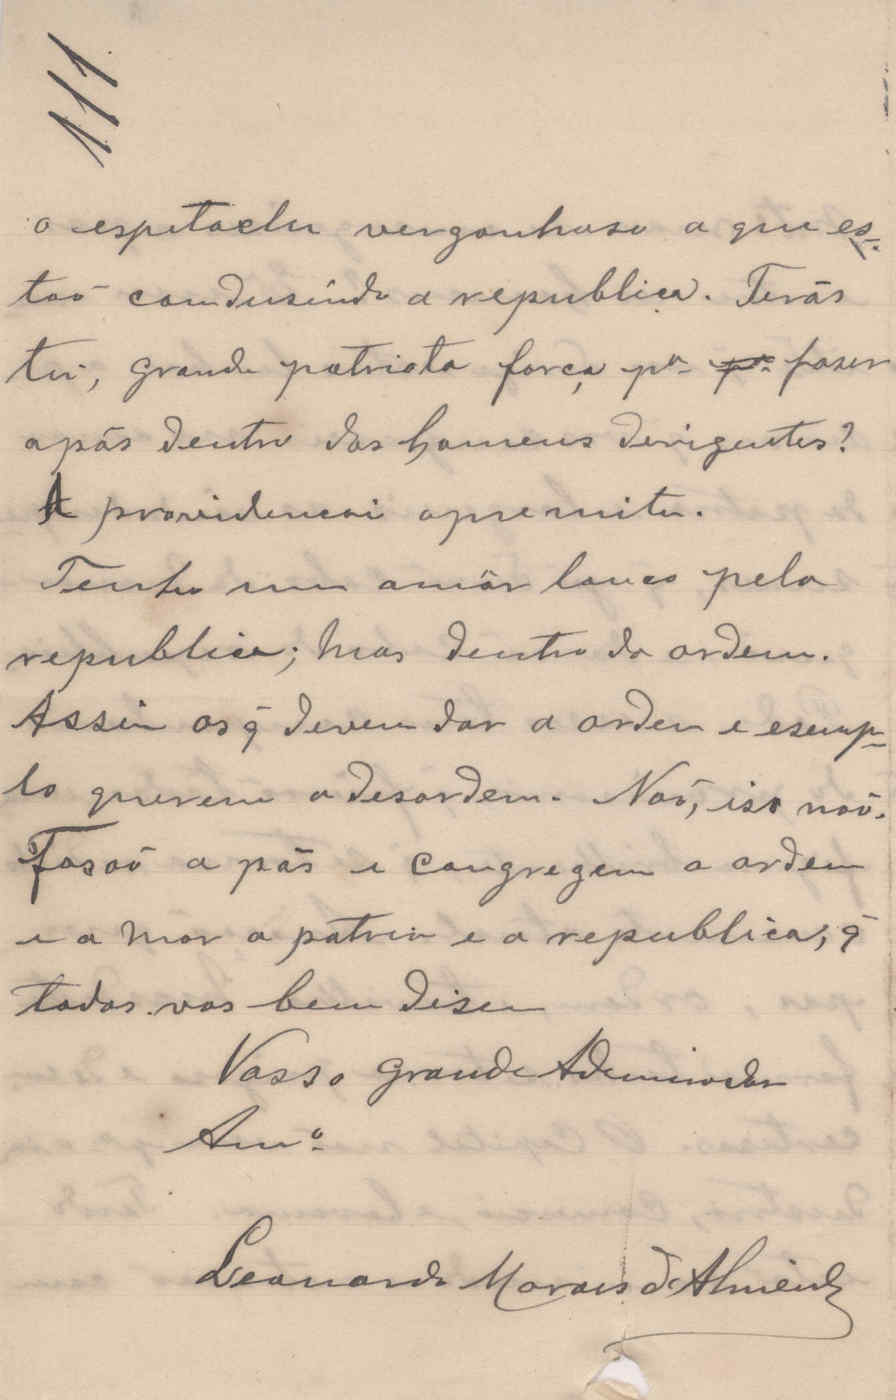 111
o espetaclu vergonhoso a que es-
taõ condusindo a republica. Terás
tu, grande patriota força pª pª faser
apás dentro dos homens derigentes?
A providencai apremitu.
Tenho um amôr louco pela
republica; mas dentro da ordem.
Assin os q̃ devem dar a orden e esemp-
lo querem a desordem. Naõ, iso naõ.
Fasaõ a pás e congregem a ordem
e a mor a patria e a republica, q̃
todos vos bem disen
Vosso grande Ademirador
Amº
Leonardo Morais de Almeida